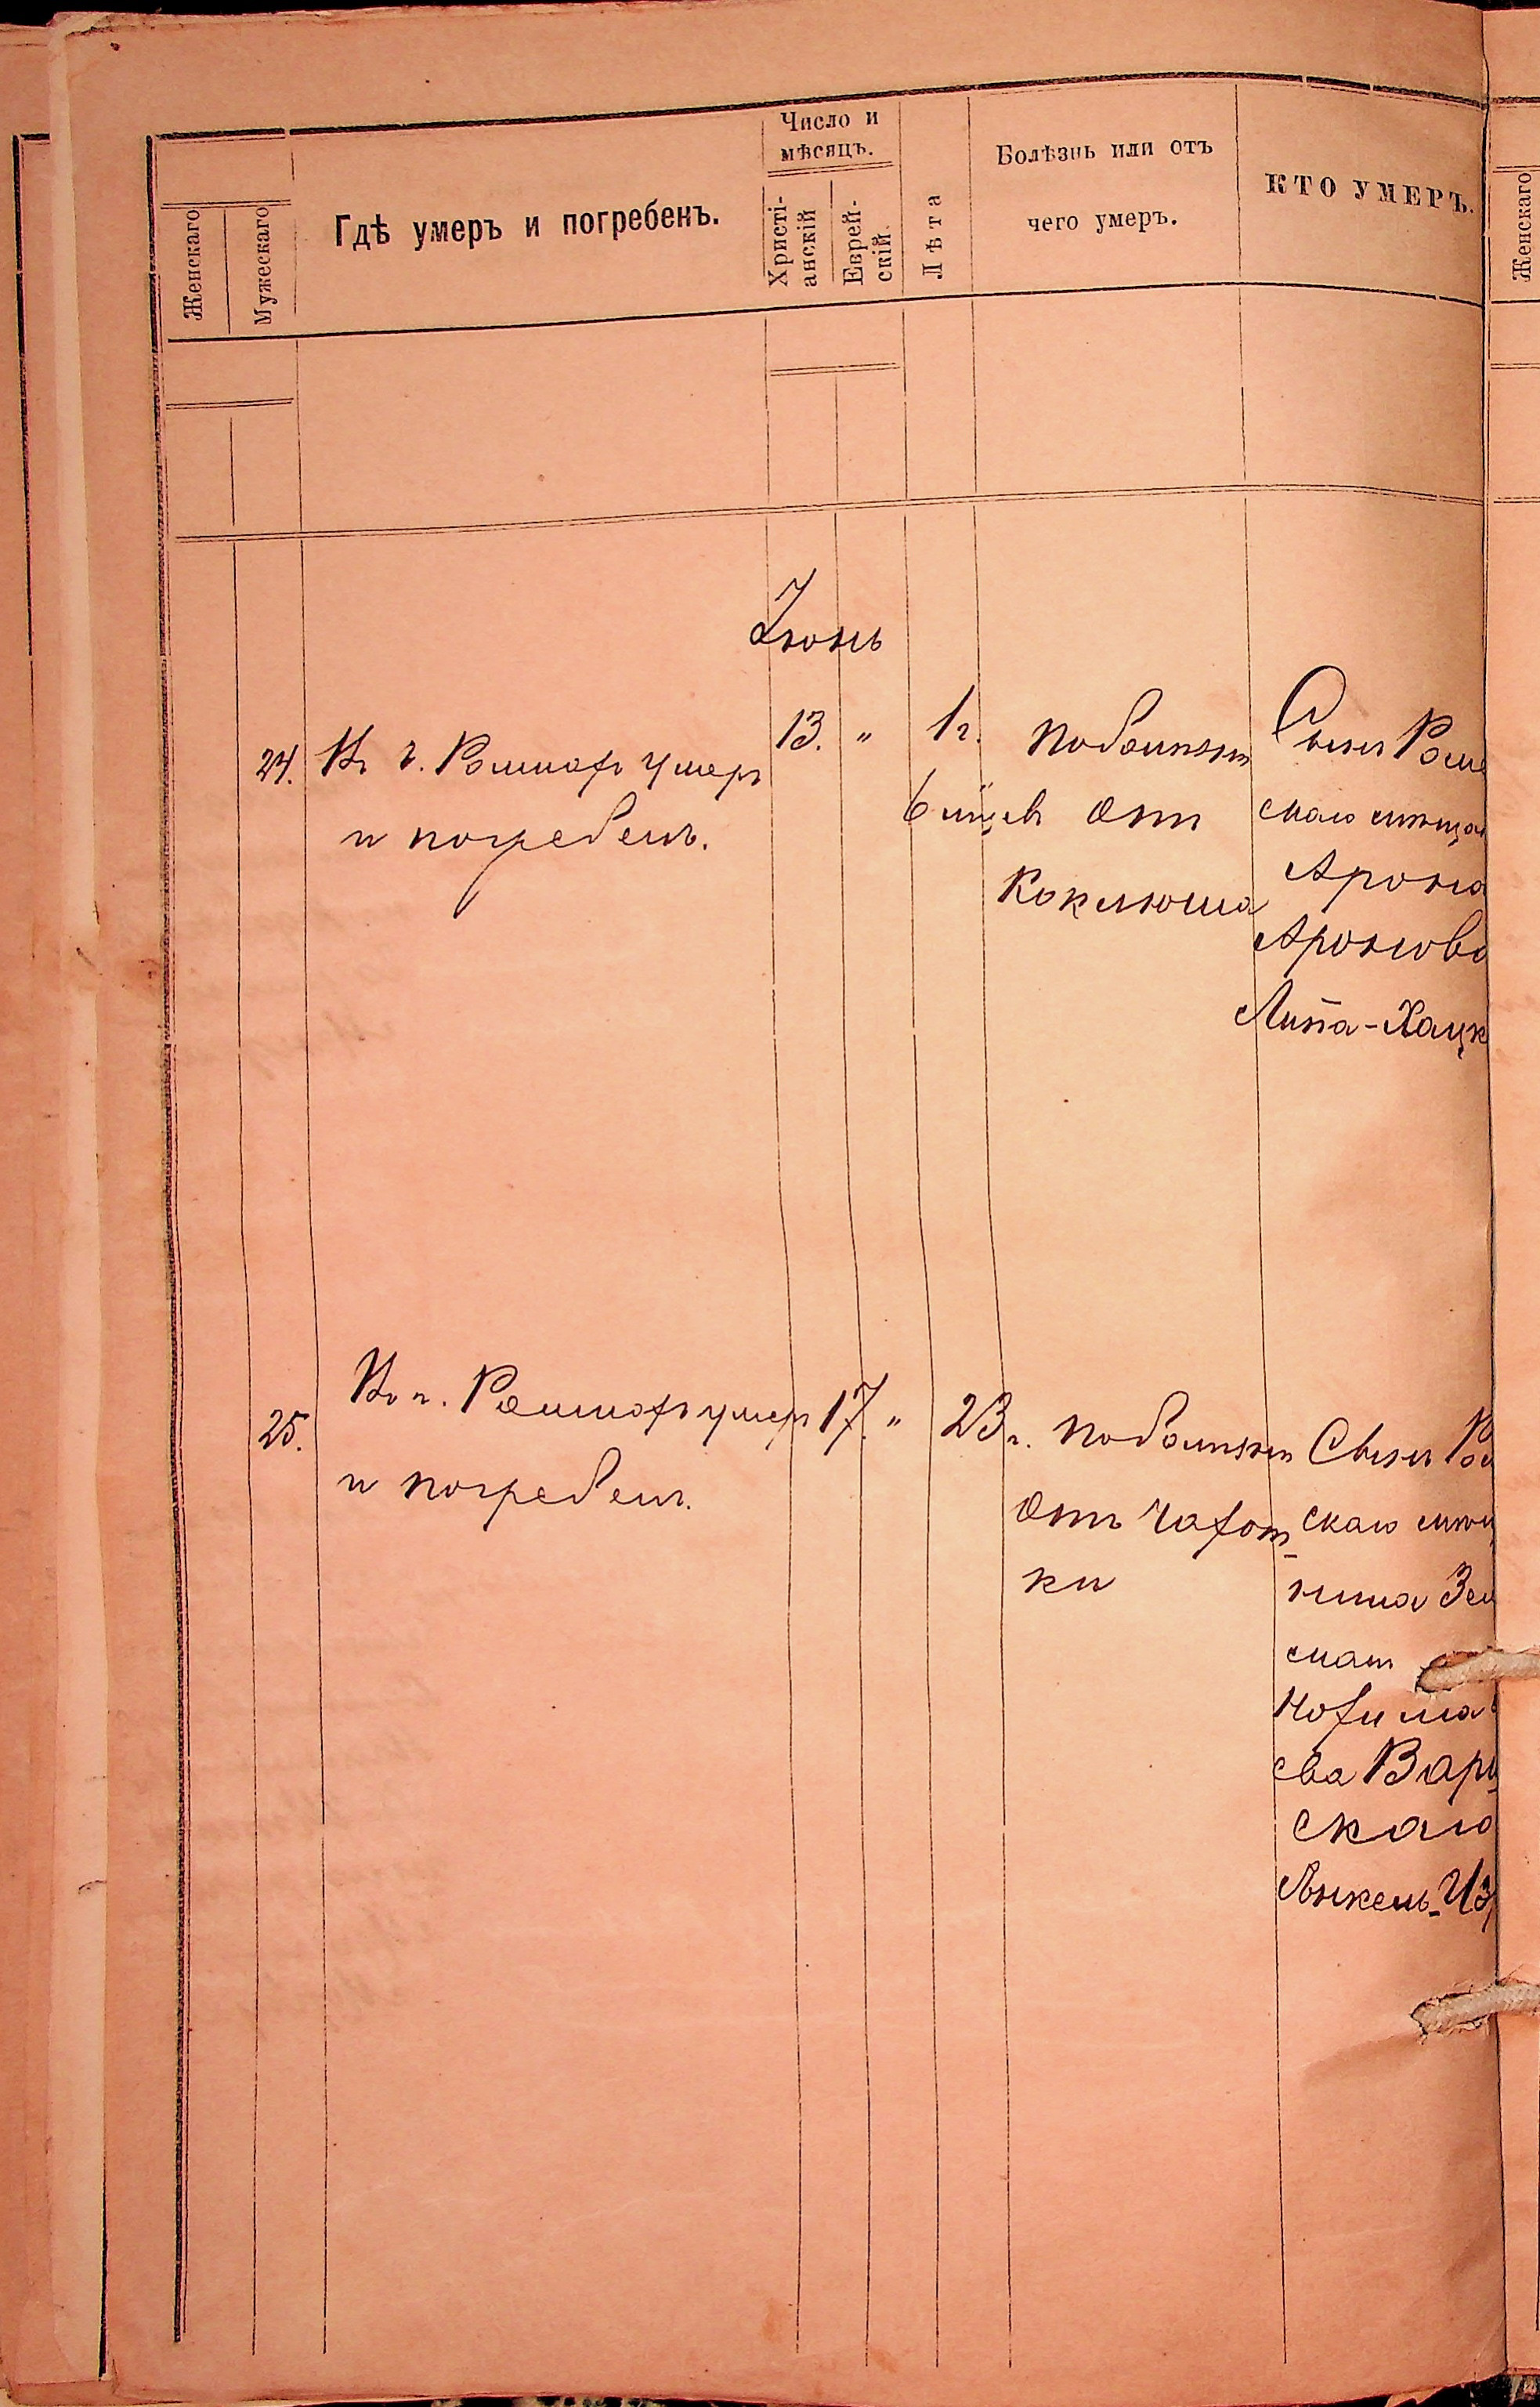 Женскаго
Мужескаго
Гдѣ умеръ и погребенъ.
Число и
мѣсяцъ.
Христі-
анскій
Еврей-
скій.
Лѣта
Болѣзнь или отъ
чего умеръ.
КТО УМЕРЪ.
Женскаго
Іюнь
24.
Въ г. Роммахъ умеръ
и погребенъ.
13. "
1 г.
6 мцев
по болѣзни
отъ
Коклюша
Сынъ
скаго мѣща
Арона
Аронова
Липа-Хацк
25.
Въ г. Роммахъ умеръ
и погребенъ.
17. "
23 г.
по болѣзни
отъ Чахот
ки
Сынъ
скаго мѣщ
нина
ева Варш
скаго
Янкель-Из